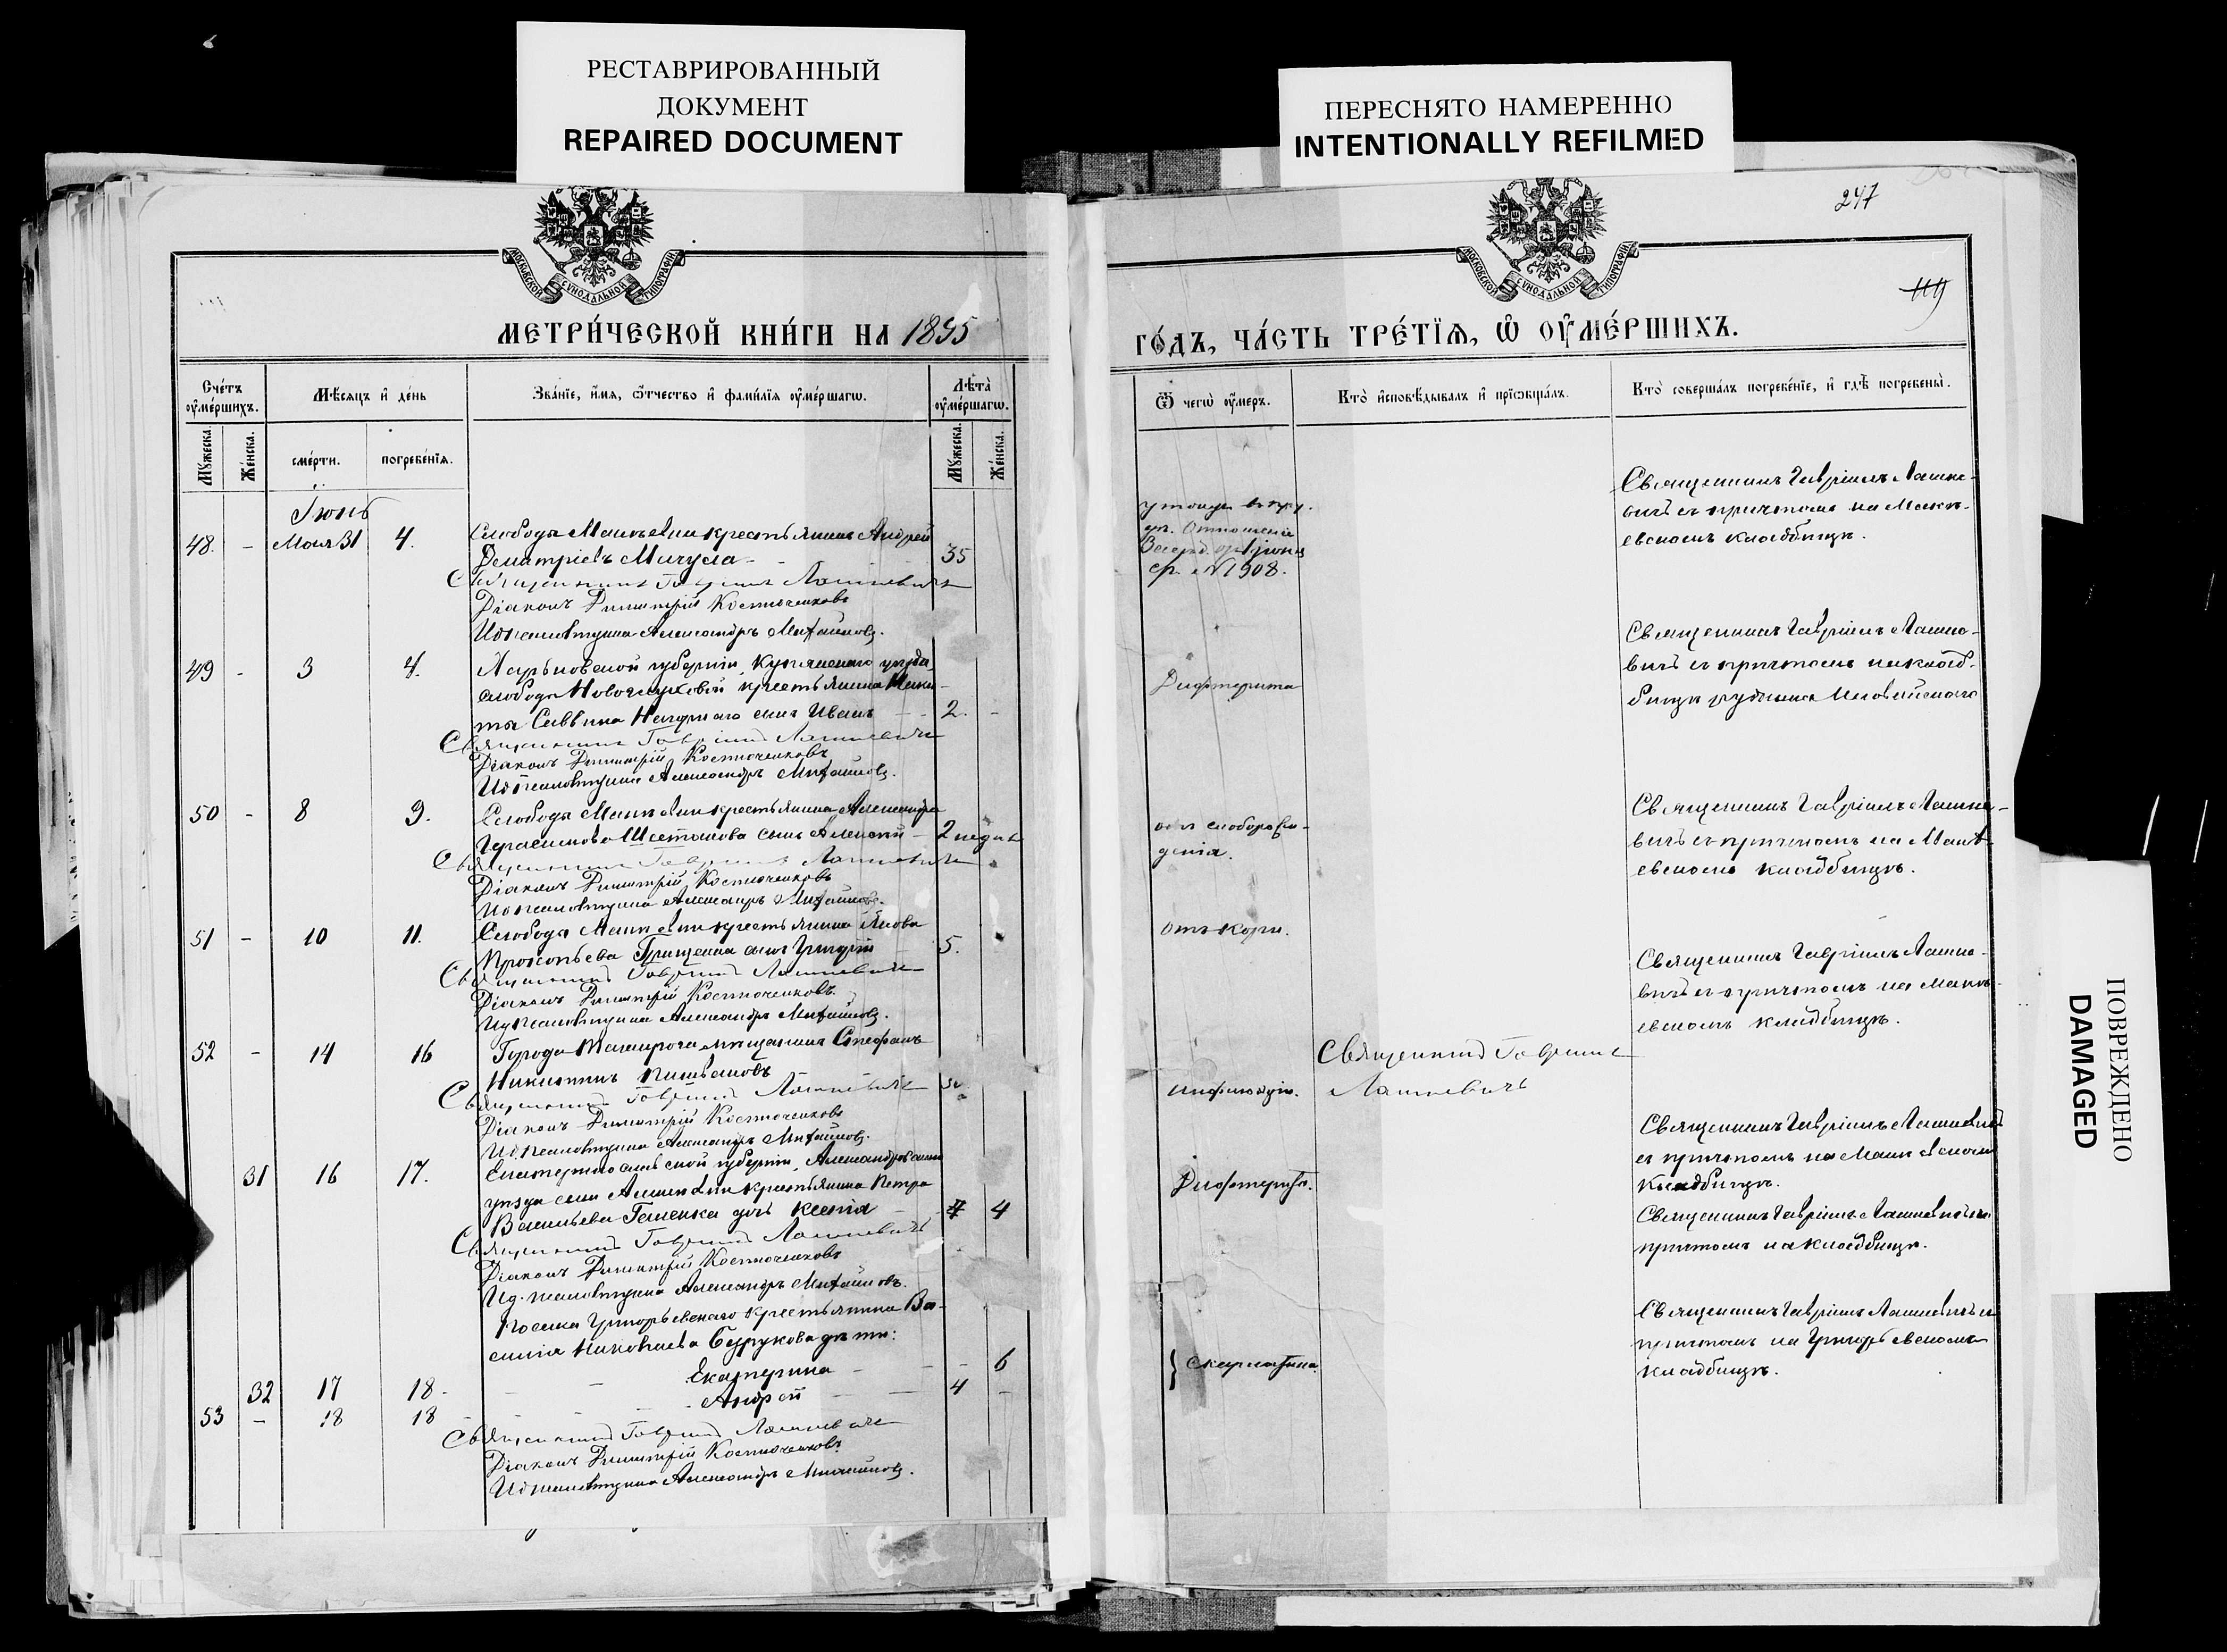 РЕСТАВРИРОВАННЫЙ
ДОКУМЕНТ
REPAIRED DOCUMENT
ПЕРЕСНЯТО НАМЕРЕННО
INTENTIONALLY REFILMED
247
119
МОСКОВСКОЙ СѴНОДАЛЬНОЙ ТИПОГРАФІИ
МОСКОВСКОЙ СѴНОДАЛЬНОЙ ТИПОГРАФІИ
МЕТРИ́ЧЕСКОЙ КНИ́ГИ НА 1895
ГО́ДЪ, ЧА́СТЬ ТРЕ́ТЇЯ, Ѡ ОУМЕ́РШИХЪ.
Сче́тъ оуме́ршихъ.
Мѣ́сяцъ и де́нь
Зва́нїе, и́мя, ѻ́тчество и фами́лїя оуме́ршагѡ.
Лѣта̀ оуме́ршагѡ.
Мꙋ́жеска.
Же́нска.
сме́рти.
погребе́нїя.
Мꙋ́жеска.
Же́нска.
Ѿ чегѡ̀ оу́меръ.
Кто̀ исповѣ́дывалъ и прїѡбща́лъ.
Кто̀ соверша́лъ погребе́нїе, и гдѣ̀ погребены̀.
Іюнь
48. - Мая 31 4. Слободы Макѣевки крестьянинъ Андрей
Димитріевъ Мигуля - 35
Священникъ Гавріилъ Лашкевичъ
Діаконъ Димитрій Костюченковъ
Ид псаломщика Александръ Михайловъ.
№ 1908.
Священникъ Гавріилъ Лашке-
вичъ съ причтомъ на Макѣ-
евскомъ кладбищѣ.
49 - 3 4. Харьковской губерніи, Купянскаго уѣзда,
слободы крестьянина Ники-
ты Саввина сынъ Иванъ - 2. -
Священникъ Гавріилъ Лашкевичъ
Діаконъ Димитрій Костюченковъ
Ид псаломщика Александръ Михайловъ.
Дифтерита
Священникъ Гавріилъ Лашке-
вичъ съ причтомъ на клад-
бищѣ рудника Иловайскаго
50 - 8 9. Слободы Макѣевки крестьянина Александра
Герасимова Шестакова сынъ Алексѣй - 2 недѣль
Священникъ Гавріилъ Лашкевичъ
Діаконъ Димитрій Костюченковъ
Ид псаломщика Александръ Михайловъ.
отъ слоборож-
денія.
Священникъ Гавріилъ Лашке-
вичъ съ причтомъ на Макѣ-
евскомъ кладбищѣ.
51 - 10 11. Слободы Макѣевки крестьянина Якова
Прокопьева Грищенка сынъ Григорій 5.
Священникъ Гавріилъ Лашкевичъ
Діаконъ Димитрій Костюченковъ.
Ид псаломщика Александръ Михайловъ.
отъ кори.
Священникъ Гавріилъ Лашке-
вичъ съ причтомъ на Макѣ-
евскомъ кладбищѣ.
52 - 14 16 Города Таганрога мѣщанинъ Стефанъ
Никитинъ
Священникъ Гавріилъ Лашкевичъ
Діаконъ Димитрій Костюченковъ
Ид. псаломщика Александръ Михайловъ.
Священникъ Гавріилъ
Лашкевичъ
Священникъ Гавріилъ Лашкевичъ
съ причтомъ на Макѣевскомъ
кладбищѣ.
31 16 17. Екатеринославской губерніи, Александровскаго
уѣзда крестьянина Петра
Васильева Гапенка дочь Ксенія - 4
Священникъ Гавріилъ Лашкевичъ
Діаконъ Димитрій Костюченковъ
Ид. псаломщика Александръ Михайловъ.
Дифтерита.
Священникъ Гавріилъ Лашкевичъ съ
причтомъ на кладбищѣ.
Поселка Григорьевскаго крестьянина Ва-
силія Николаева Бурукова дѣти:
32 17 18 - Екатерина - - 6
53 - 18 18 - Андрей - 4 -
Священникъ Гавріилъ Лашкевичъ
Діаконъ Димитрій Костюченковъ.
Ид псаломщика Александръ Михайловъ.
} Скарлатина.
Священникъ Гавріилъ Лашкевичъ съ
причтомъ на Григорьевскомъ
кладбищѣ.
ПОВРЕЖДЕНО
DAMAGED